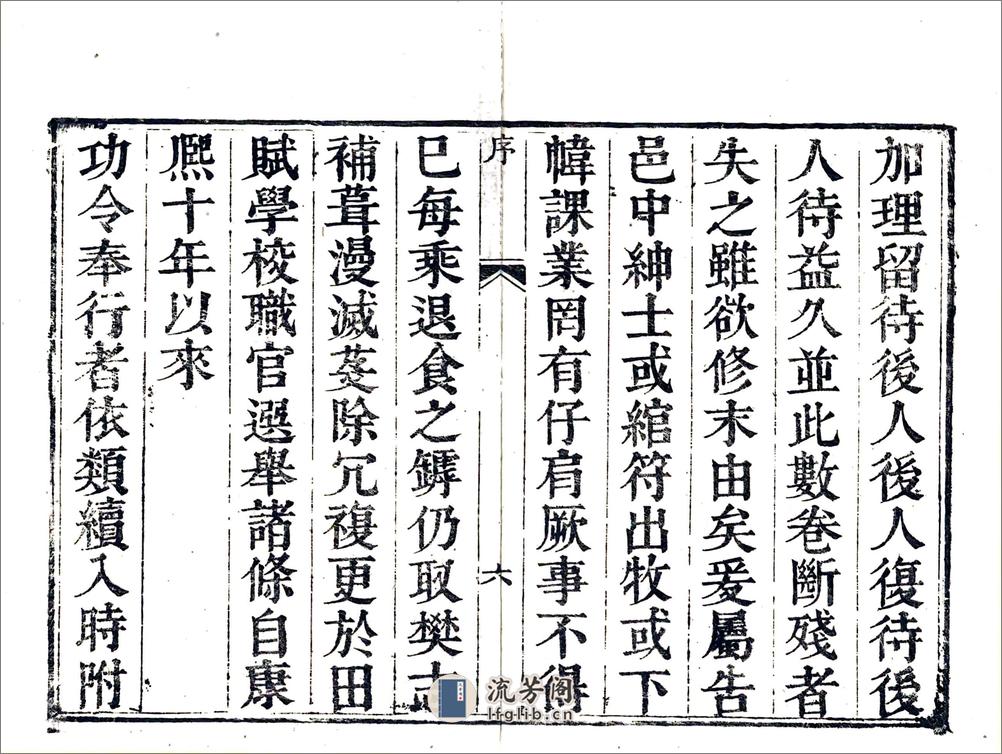 加理留待後人後人復待後
人待益久並此數卷斷殘者
失之雖欲修末由矣爰屬告
邑中紳士或綰符出牧或下
幃課業罔有仔肩厥事不得
序
六
已每乘退食之罅仍取樊志
補葺漫滅芟除冗複更於田
賦學校職官選舉諸條自康
熈十年以來
功令奉行者依類續入時附
流芳阁
lfglib.cn